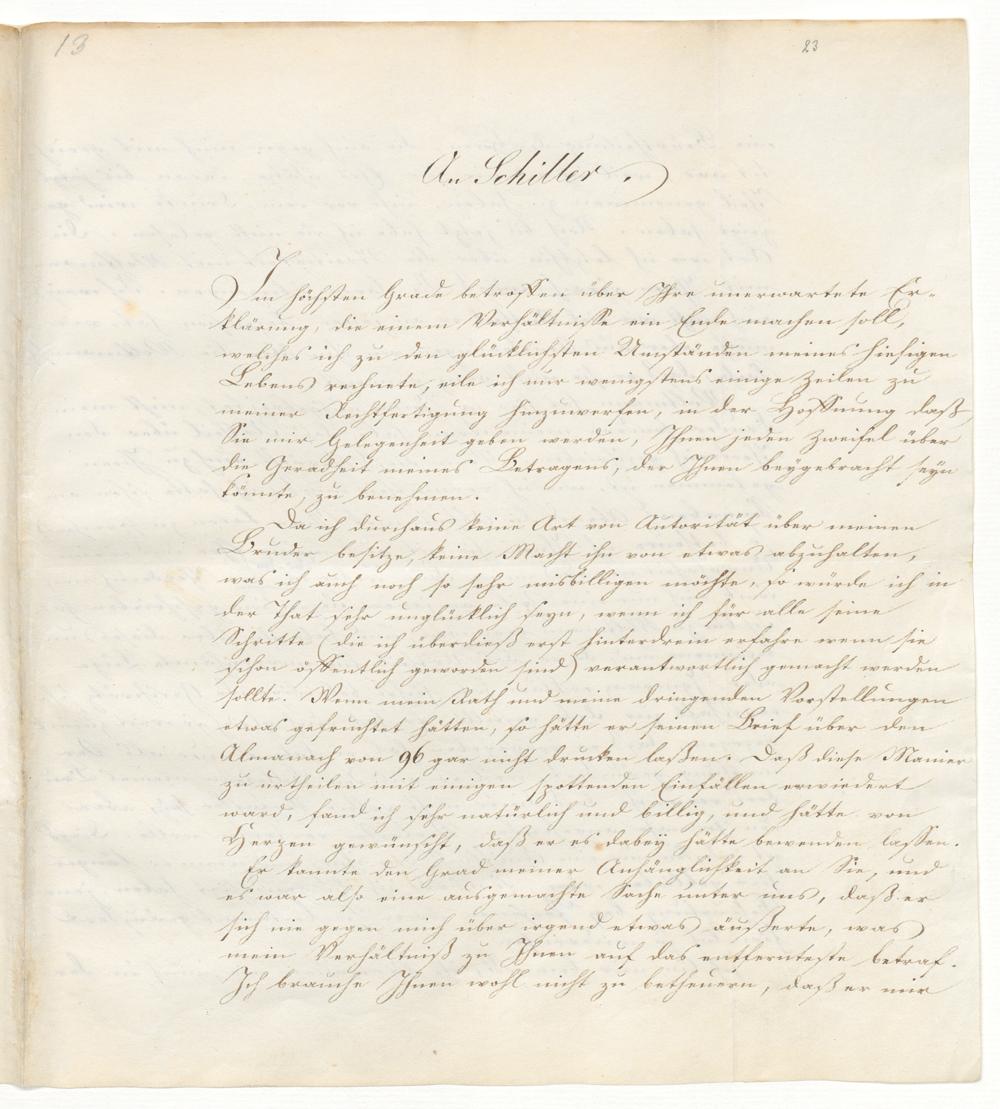 13
23
An Schiller.
Im höchsten Grade betroffen über Ihre unerwartete Er-
klärung, die einem Verhältnisse ein Ende machen soll,
welches ich zu den glücklichsten Umständen meines hiesigen
Lebens rechnete, eile ich nur wenigstens einige Zeilen zu
meiner Rechtfertigung hinzuwerfen, in der Hoffnung daß
Sie mir Gelegenheit geben werden, Ihnen jeden Zweifel über
die Geradheit meines Betragens, der Ihnen beygebracht seyn
könnte, zu benehmen.
Da ich durchaus keine Art von Autorität über meinen
Bruder besitze, keine Macht ihn von etwas abzuhalten,
was ich auch noch so sehr misbilligen möchte, so würde ich in
der That sehr unglücklich seyn, wenn ich für alle seine
Schritte (die ich überdieß erst hinterdrein erfahre wenn sie
schon öffentlich geworden sind) verantwortlich gemacht werden
sollte. Wenn mein Rath und meine dringenden Vorstellungen
etwas gefruchtet hätten, so hätte er seinen Brief über den
Almanach von 96 gar nicht drucken laßen. Daß diese Manier
zu urtheilen mit einigen spottenden Einfällen erwiedert
ward, fand ich sehr natürlich und billig, und hätte von
Herzen gewünscht, daß er es dabey hätte bewenden lassen.
Er kannte den Grad meiner Anhänglichkeit an Sie, und
es war also eine ausgemachte Sache unter uns, daß er
sich nie gegen mich über irgend etwas äußerte, was
mein Verhältniß zu Ihnen auf das entfernteste betraf.
Ich brauche Ihnen wohl nicht zu betheuern, daß er mir